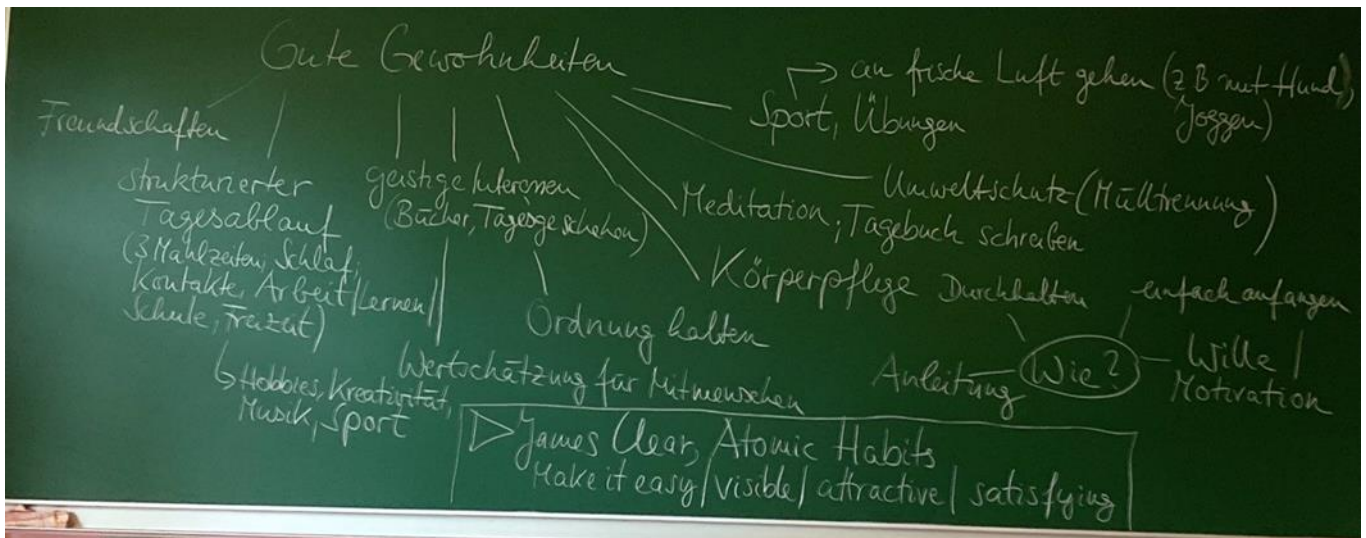 Gute Gewohnheiten
Freundschaften
strukturierter
Tagesablauf
(3 Mahlzeiten, Schlaf,
Kontakte, Arbeit/Lernen/
Schule, Freizeit)
↳ Hobbies, Kreativität,
Musik, Sport
geistige Interessen
(Bücher, Tagesgeschehen)
Wertschätzung für Mitmenschen
Ordnung halten
Körperpflege
Meditation, Tagebuch schreiben
Umweltschutz (Mülltrennung)
Sport, Übungen
→ an frische Luft gehen (z B mit Hund,
Joggen)
Wie?
Anleitung
Durchhalten
einfach anfangen
Wille /
Motivation
▷ James Clear, Atomic Habits
Make it easy / visible / attractive / satisfying